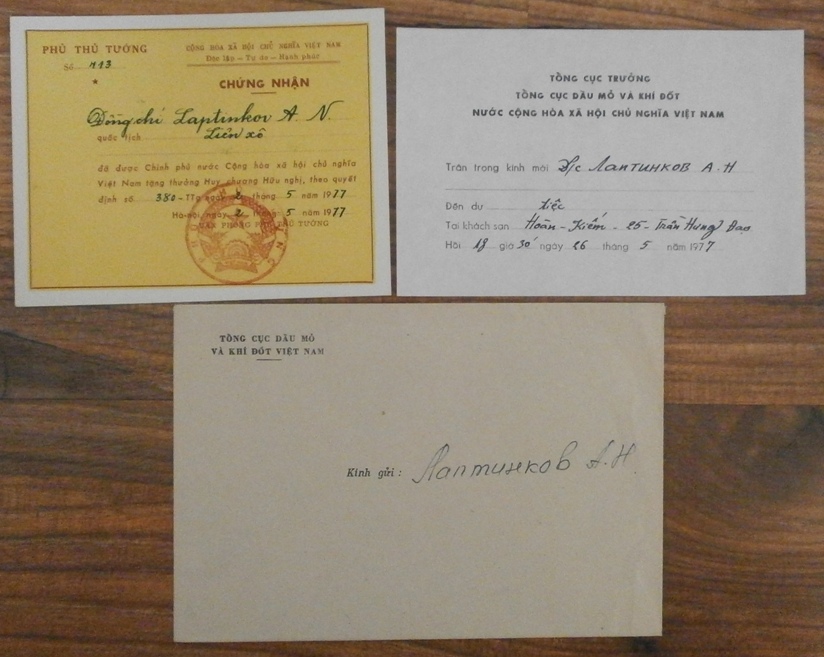 PHỦ THỦ TƯỚNG
Số 113
CỘNG HÒA XÃ HỘI CHỦ NGHĨA VIỆT NAM
Độc lập – Tự do – Hạnh phúc
CHỨNG NHẬN
Đồng chí Laptinkov A. N.
quốc tịch Liên xô
đã được Chính phủ nước Cộng hòa xã hội chủ nghĩa
Việt Nam tặng thưởng Huy chương Hữu nghị, theo quyết
định số 380-TTg ngày 2 tháng 5 năm 1977
Hà-nội, ngày 2 tháng 5 năm 1977
VĂN PHÒNG PHỦ THỦ TƯỚNG
TỔNG CỤC TRƯỞNG
TỔNG CỤC DẦU MỎ VÀ KHÍ ĐỐT
NƯỚC CỘNG HÒA XÃ HỘI CHỦ NGHĨA VIỆT NAM
Trân trọng kính mời Đ/c Лаптинков А.Н
Đến dự tiệc
Tại khách sạn Hoàn-Kiếm - 25-Trần Hưng Đạo
Hồi 18 giờ 30 ngày 26 tháng 5 năm 1977
TỔNG CỤC DẦU MỎ
VÀ KHÍ ĐỐT VIỆT NAM
Kính gửi : Лаптинков А.Н.